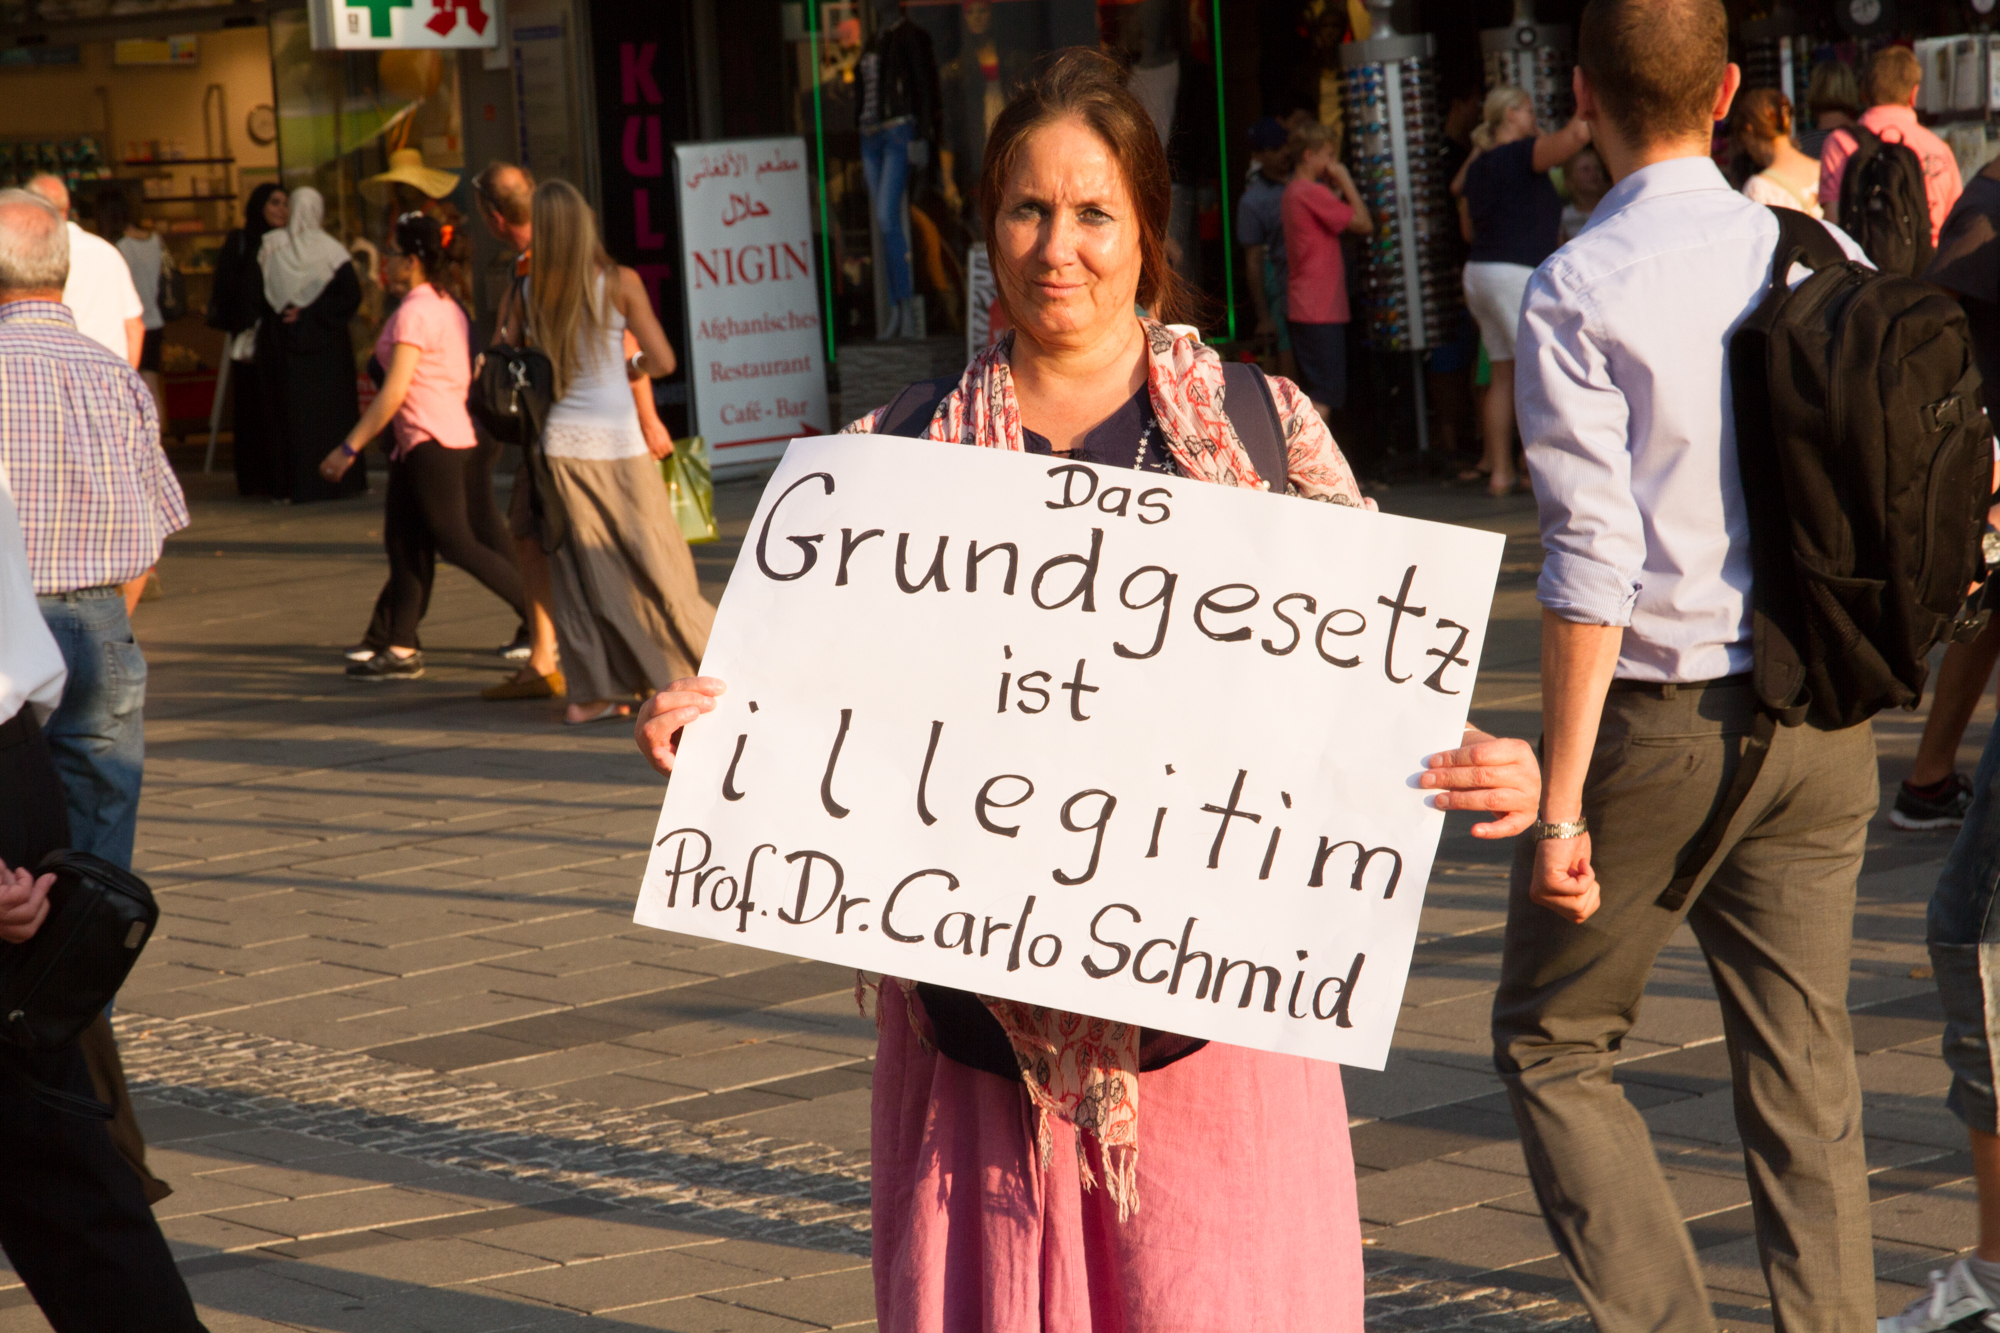 KULT
مطعم الأفغاني
حلال
NIGIN
Afghanisches
Restaurant
Café - Bar
Das
Grundgesetz
ist
illegitim
Prof. Dr. Carlo Schmid